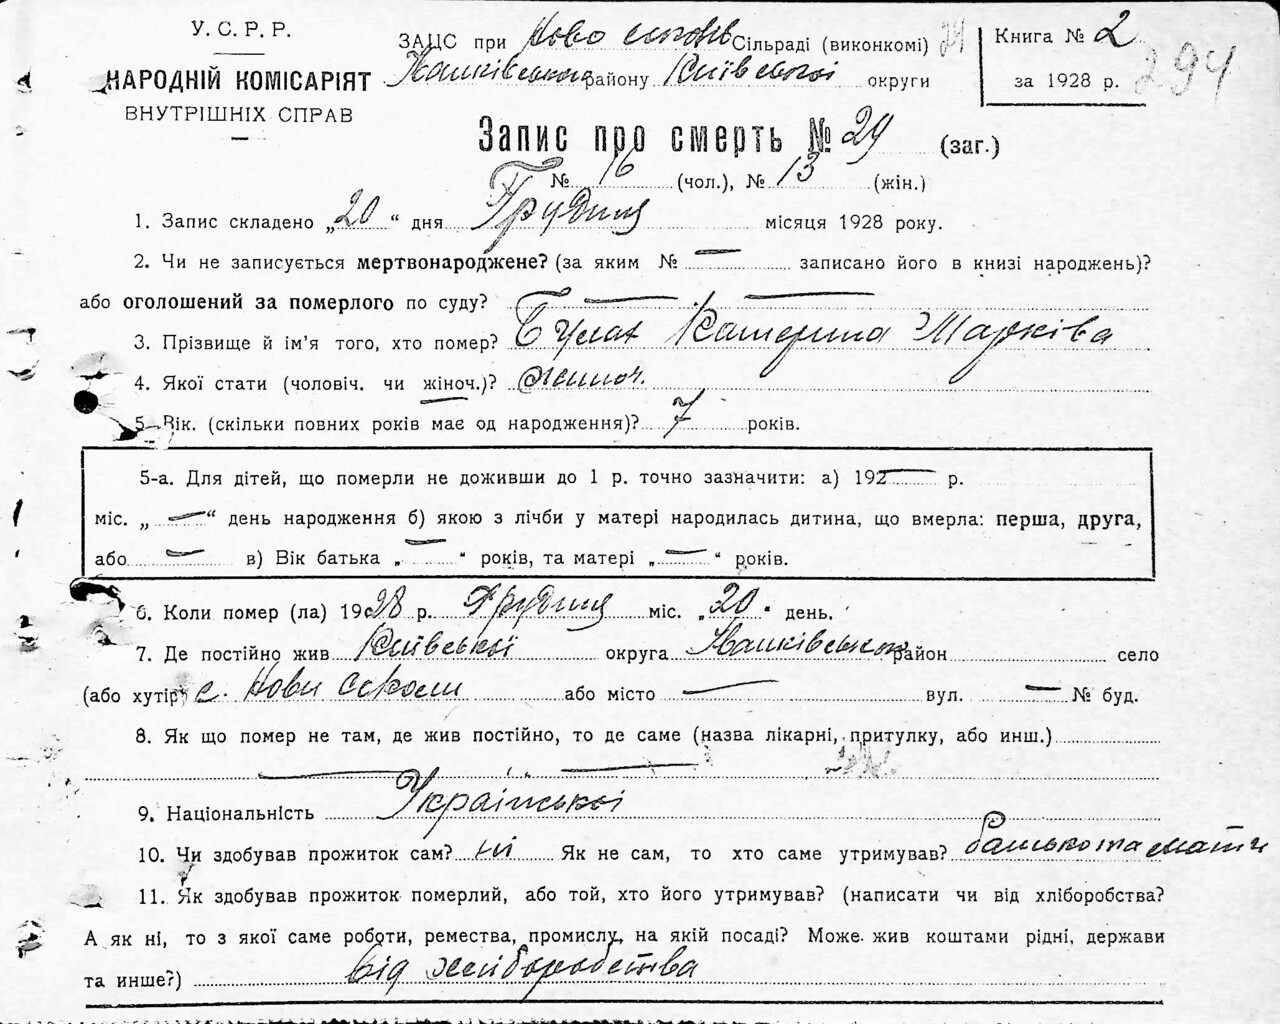 У. С. Р. Р.
НАРОДНІЙ КОМІСАРІЯТ
ВНУТРІШНІХ СПРАВ
ЗАЦС при Ново Сільраді (виконкомі)
району Київської округи
Книга № 2
за 1928 р.
294
Запис про смерть № 29 (заг.)
№ 16 (чол.), № 13 (жін.)
1. Запис складено „20“ дня Грудня місяця 1928 року.
2. Чи не записується мертвонароджене? (за яким № — записано його в книзі народжень)?
або оголошений за померлого по суду? — —
3. Прізвище й ім’я того, хто помер? Булах Катерина Марківа
4. Якої стати (чоловіч. чи жіноч.)? жиноч.
5. Вік. (скільки повних років має од народження)? 7 років.
5-а. Для дітей, що померли не доживши до 1 р. точно зазначити: а) 192— р.
міс. „ — “ день народження б) якою з лічби у матері народилась дитина, що вмерла: перша, друга,
або — в) Вік батька „ — “ років, та матері „ — “ років.
6. Коли помер (ла) 1928 р. Грудня міс. „20“ день.
7. Де постійно жив Київської округа район село
(або хутір) с. Нови Соколи або місто — вул. — № буд.
8. Як що помер не там, де жив постійно, то де саме (назва лікарні, притулку, або инш.)
— —
9. Національність Української
10. Чи здобував прожиток сам? ні Як не сам, то хто саме утримував? батько та мати
11. Як здобував прожиток померлий, або той, хто його утримував? (написати чи від хліборобства?
А як ні, то з якої саме роботи, ремества, промислу, на якій посаді? Може жив коштами рідні, держави
та инше?) від хліборобства